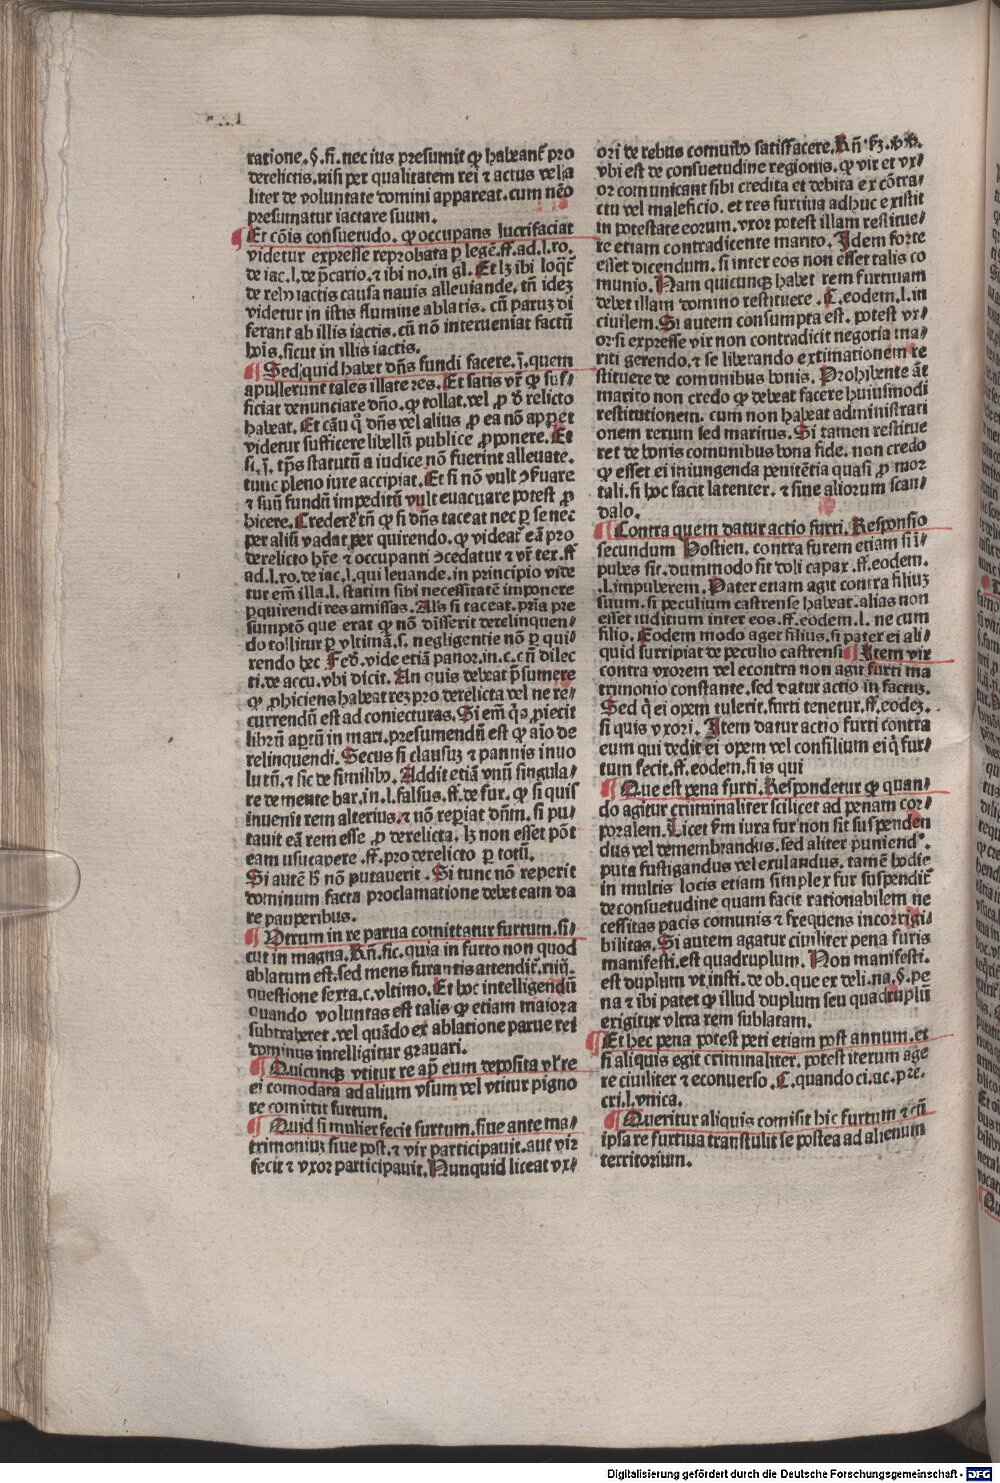 ratione.§.fi.nec ius presumit ꝙ habeant̃ pro
derelictis.nisi per qualitatem rei ⁊ actus vel a
liter de voluntate domini appareat.cum nẽo
presumatur iactare suum.
¶ Et cõis consuetudo. ꝙ occupans lucrifaciat
videtur expresse reprobata ꝑ legẽ.ff.ad.l.ro.
de iac.l.de p̃cario.⁊ ibi no.in gl. Et lꝫ ibi loqt̃
de rebꝰ iactis causa nauis alleuiande. tñ ideꝫ
videtur in istis flumine ablatis. cũ paruꝫ di
ferant ab illis iactis.cũ nõ interueniat factũ
hoĩs.sicut in illis iactis.
¶ Sed quid habet dñs fundi facere.j.quem
apullerunt tales illate res. Et satis vr̃ ꝙ suf⸗
ficiat denunciare dño.ꝙ tollat.vel ꝓ derelicto
habeat. Et cãu dñs vel alius ꝓ ea nõ apꝑet
videtur sufficere libellũ publice ꝓponere. Et
si.j. tp̃s statutũ a iudice nõ fuerint alleuate.
tunc pleno iure accipiat. Et si nõ vult ꝯseruare
⁊ suũ fundũ impeditũ vult euacuare potest ꝓ
hicere. Crederẽ tñ ꝙ si dñs taceat nec ꝑ se nec
per aliũ vadat per quirendo. ꝙ videat̃ eã pro
derelicto hr̃e ⁊ occupanti ꝯcedatur ⁊ vr̃ tex.ff
ad.l.ro.de iac.l.qui leuande.in principio vide
tur em̃ illa.l. statim sibi necessitatẽ imponere
ꝑquirendi res amissas. Al's si taceat.pria pre
sumptõ que erat ꝙ nõ disserit derelinquen⸗
do tollitur ꝑ vltimã.s. negligentie nõ ꝑ qui⸗
rendo hec Fed. vide etiã panor.in.c.cũ dilec
ti.de accu.vbi dicit. An quis debeat p̃sumere
ꝙ ꝓhiciens habeat reꝫ pro derelicta vel ne re⸗
currendũ est ad coniecturas. Si em̃ qs ꝓiecit
librũ aꝑtũ in mari.presumendũ est ꝙ aĩo de
relinquendi. Secus si clausuꝫ ⁊ pannis inuo
lutũ.⁊ sic de similibꝰ. Addit etiã vnũ singula⸗
re de mente bar.in.l.falsus.ff.de fur. ꝙ si quis
inuenit rem alterius.⁊ nõ reꝑiat dñm. si pu⸗
tauit eã rem esse ꝓ derelicta. lꝫ non esset põt
eam usucapere.ff.pro derelicto ꝑ totũ.
Si autẽ hꝰ nõ putauerit. Si tunc nõ reperit
dominum facta proclamatione debet eam da
re pauperibus.
¶ Vtrum in re parua comittatur furtum.si⸗
cut in magna. Rñ.sic.quia in furto non quod
ablatum est.sed mens furantis attendit̃.xiiij.
questione sexta.c.vltimo. Et hoc intelligendũ
quando voluntas est talis ꝙ etiam maiora
subtraheret.vel quãdo ex ablatione parue rei
dominus intelligitur grauari.
¶ Quicunqꝫ vtitur re apđ eum deposita vl' re
ei comodata ad alium vsum vel vtitur pigno
re comittit furtum.
¶ Quid si mulier fecit furtum.siue ante ma⸗
trimoniuꝫ siue post.⁊ vir participauit.aut vir
fecit ⁊ vxor participauit. Nunquid liceat vx⸗
ori de rebus comuĩbꝰ satisfacere. Rñ
vbi est de consuetudine regionis.ꝙ vir et vx⸗
or comunicant sibi credita et debita ex cõtra⸗
ctu vel maleficio. et res furtiua adhuc existit
in potestate eorum. vxor potest illam restitue⸗
re etiam contradicente marito. Idem forte
esset dicendum. si inter eos non esset talis co
munio. Nam quicunqꝫ habet rem furtiuam
debet illam domino restituere. C.eodem.l.in
ciuilem. Si autem consumpta est. potest vx⸗
or si expresse vir non contradicit negotia ma⸗
riti gerendo.⁊ se liberando extimationem re
stituere de comunibus bonis. Prohibente aũt
marito non credo ꝙ debeat facere huiusmodi
restitutionem. cum non habeat administrati
onem rerum sed maritus. Si tamen restitue
ret de bonis comunibus bona fide. non credo
ꝙ esset ei iniungenda penitẽtia quasi ꝓ mor
tali.si hoc facit latenter. ⁊ sine aliorum scan⸗
dalo.
¶ Contra quem datur actio furti. Responsio
secundum Hostien. contra furem etiam si ĩ⸗
pubes sit.dummodo sit doli capax.ff.eodem.
.l.impuberem. Pater etiam agit contra filiuꝫ
suum.si peculium castrense habeat.alias non
esset iuditium inter eos.ff.eodem.l. ne cum
filio. Eodem modo aget filius.si pater ei ali⸗
quid surripiat de peculio castrensi ¶ Item vir
contra vxorem vel econtra non agit furti ma
trimonio constante.sed datur actio in factuꝫ.
Sed q̃ ei opem tulerit.furti tenetur.ff.eodeꝫ.
si quis vxori. Item datur actio furti contra
eum qui dedit ei opem vel consilium ei q̃ fur⸗
tum fecit.ff.eodem.si is qui
¶ Que est pena furti. Respondetur ꝙ quan⸗
do agitur criminaliter scilicet ad penam cor⸗
poralem. Licet fm iura fur non sit suspenden
dus vel demembrandus.sed aliter puniendꝰ.
puta fustigandus vel exulandus. tamẽ hodie
in multis locis etiam simplex fur suspendit̃
de consuetudine quam facit rationabilem ne
cessitas pacis comunis ⁊ frequens incorrigi⸗
bilitas. Si autem agatur ciuiliter pena furis
manifesti.est quadruplum. Non manifesti.
est duplum vt insti. de ob.que ex deli.na.§.pe
na ⁊ ibi patet ꝙ illud duplum seu quadruplũ
exigitur vltra rem sublatam.
¶ Et hec pena potest peti etiam post annum.et
si aliquis egit criminaliter. potest iterum age
re ciuiliter ⁊ econuerso. C.quando ci.ac.pre⸗
cri.l.vnica.
¶ Queritur aliquis comisit hic furtum ⁊ cũ
ipsa re furtiua transtulit se postea ad alienum
territorium.
Digitalisierung gefördert durch die Deutsche Forschungsgemeinschaft - DFG